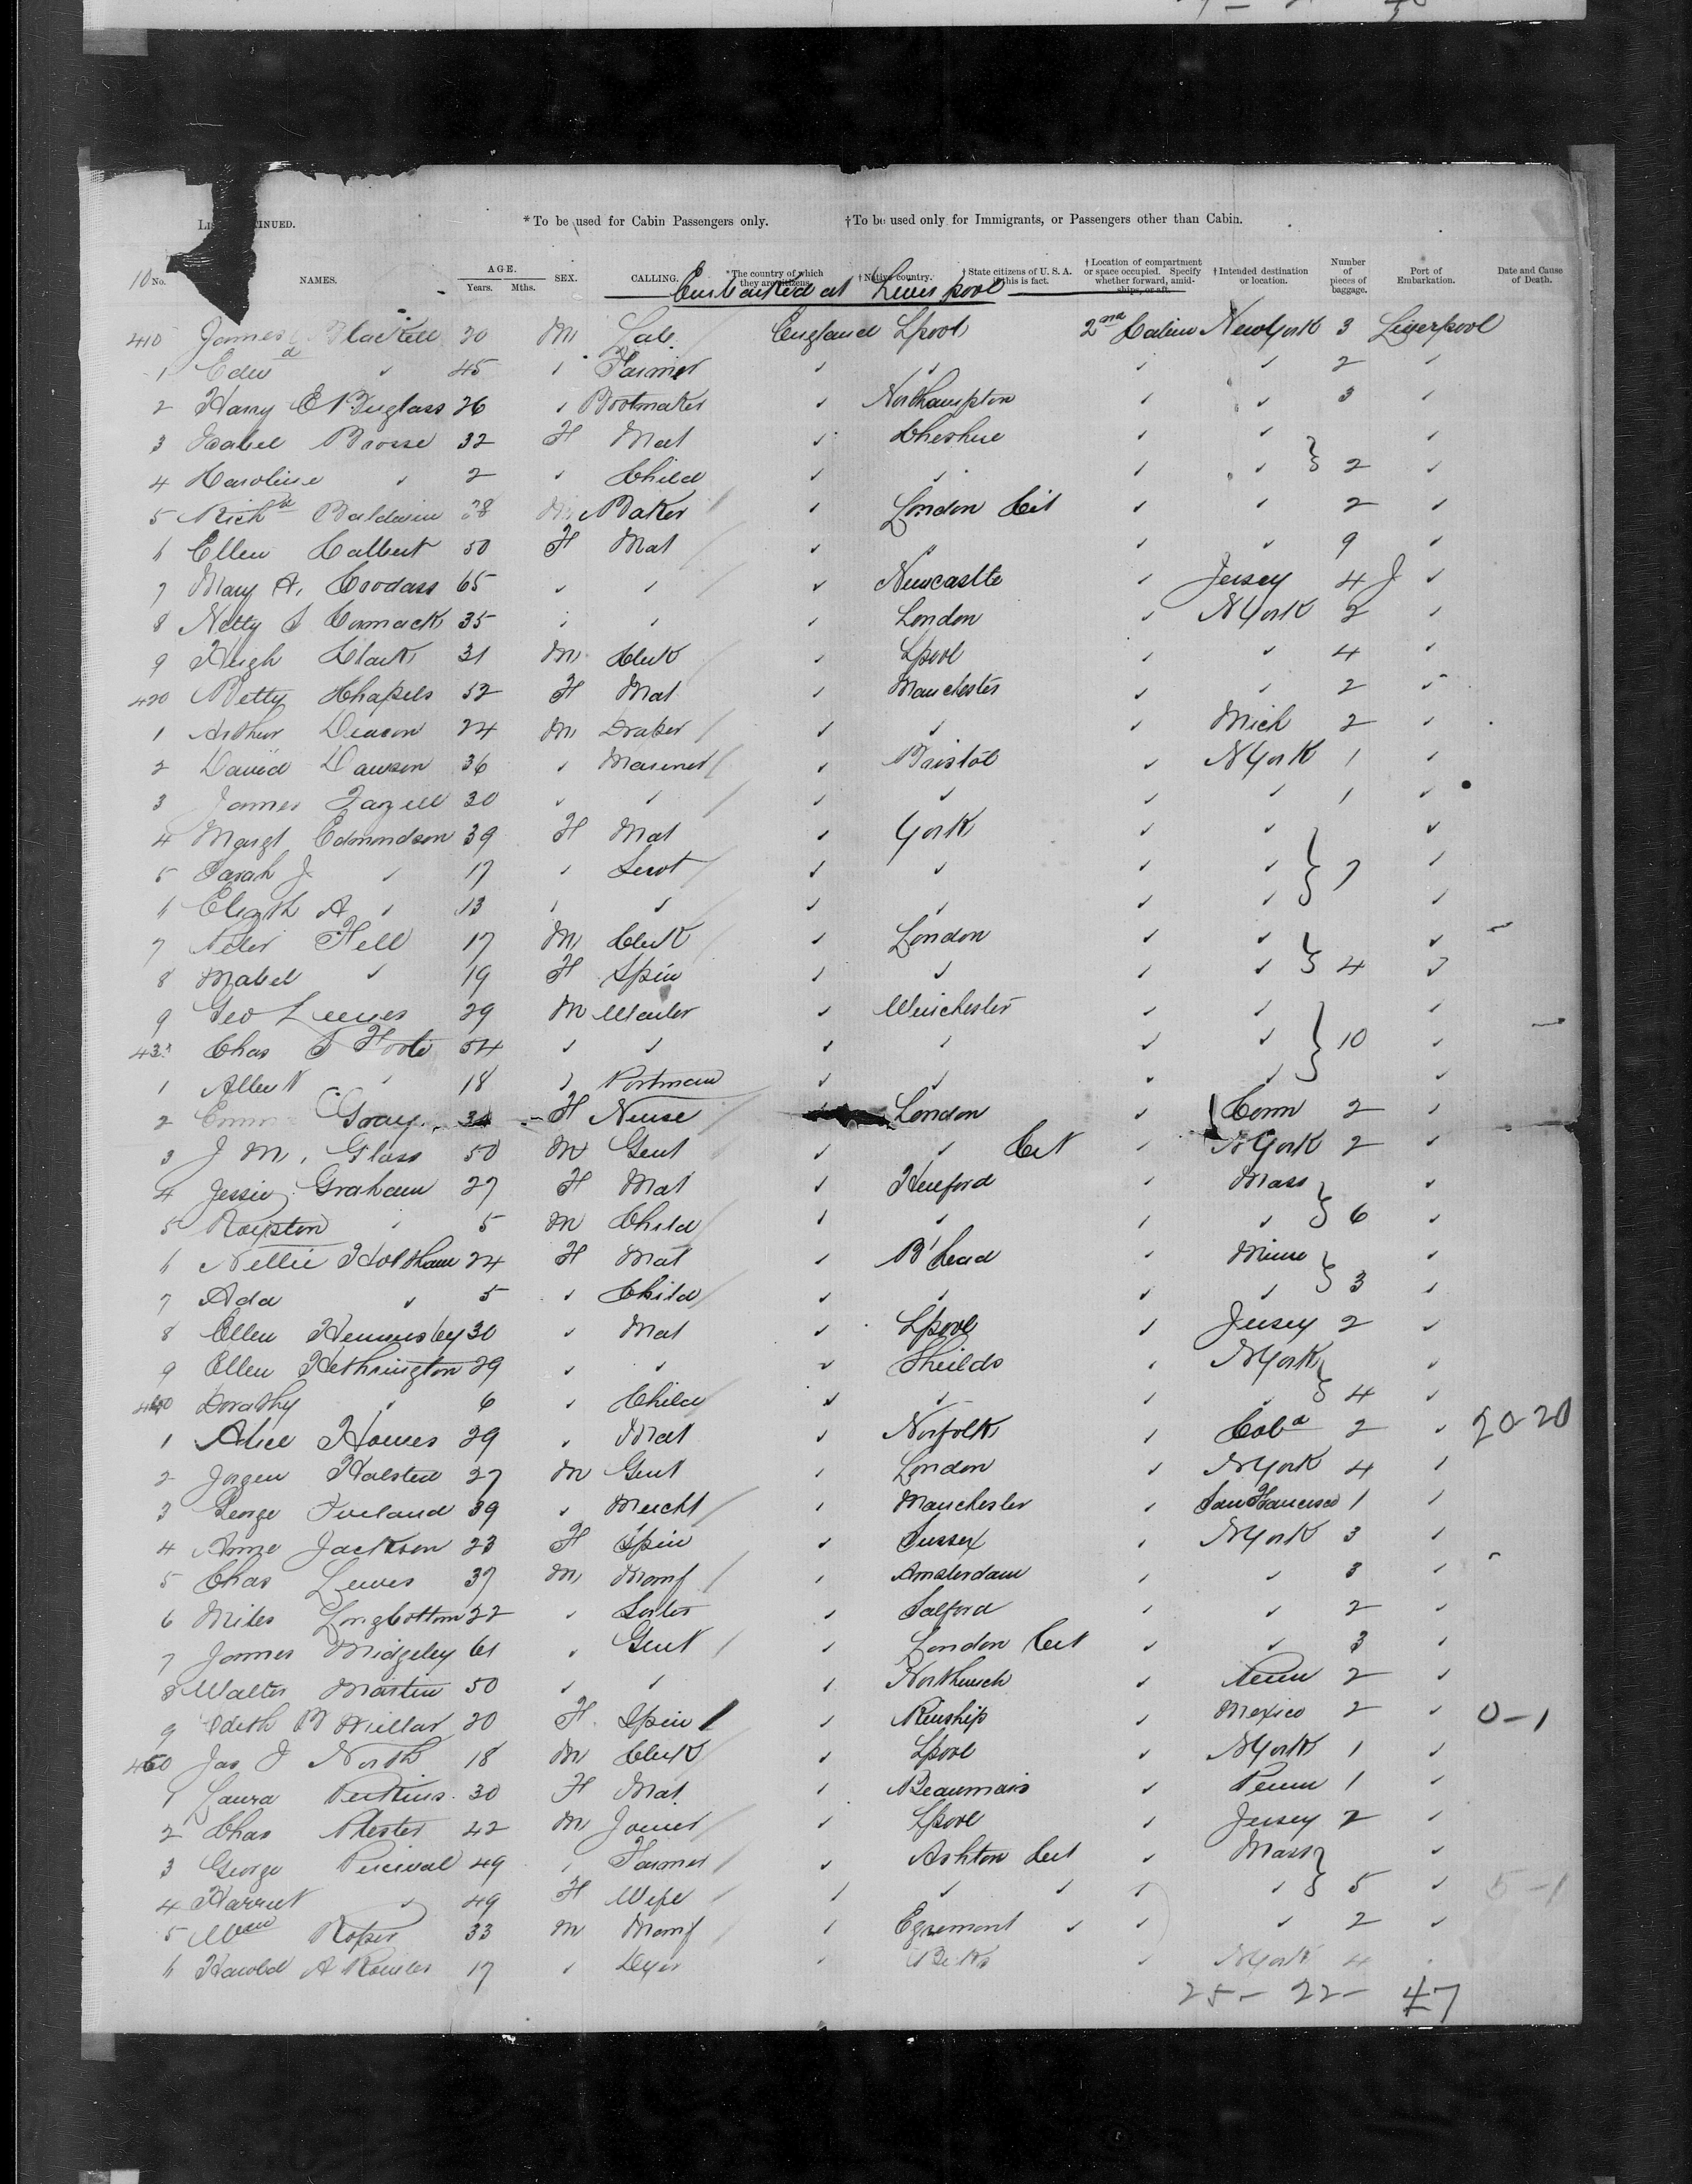 LIS TINUED. *To be used for Cabin Passengers only. †To be used only for Immigrants, or Passengers other than Cabin.
10 No. NAMES. AGE. Years. Mths. SEX. CALLING. *The country of which they are citizens. †Native country. †State citizens of U. S. A. if this is fact. †Location of compartment or space occupied. Specify whether forward, amidships, or aft. †Intended destination or location. Number of pieces of baggage. Port of Embarkation. Date and Cause of Death.
Embarked at Liverpool
410 James Blackell 20 M Lab. England Lpool 2nd Cabin New York 3 Liverpool
1 Edwd ✓ 45 ✓ Farmer ✓ ✓ ✓ ✓ 2 ✓
2 Harry E Buglass 26 ✓ Bootmaker ✓ Northampton ✓ ✓ 3 ✓
3 Isabel Brosse 32 F Mat ✓ Cheshire ✓ ✓ ✓
4 Caroline ✓ 2 ✓ Child ✓ ✓ ✓ ✓ } 2 ✓
5 Richd Baldwin 38 M Baker ✓ London Cit ✓ ✓ 2 ✓
6 Ellen Calbert 50 F Mat ✓ ✓ ✓ ✓ 9 ✓
7 Mary A. Crodass 65 ✓ ✓ ✓ Newcastle ✓ Jersey 4 J ✓
8 Netty S Cormack 35 ✓ ✓ ✓ London ✓ NYork 2 ✓
9 Hugh Clark 31 M Clerk ✓ Lpool ✓ ✓ 4 ✓
420 Betty Chapels 52 F Mat ✓ Manchester ✓ ✓ 2 ✓
1 Arthur Deacon 24 M Draper ✓ ✓ ✓ Mich 2 ✓
2 David Dawson 36 ✓ Mariner ✓ Bristol ✓ NYork 1 ✓
3 James 30 ✓ ✓ ✓ ✓ ✓ ✓ 1 ✓
4 Margt Edmondson 39 F Mat ✓ York ✓ ✓ ✓
5 Sarah J ✓ 17 ✓ Servt ✓ ✓ ✓ ✓ } 7 ✓
6 Elizth A ✓ 13 ✓ ✓ ✓ ✓ ✓ ✓ ✓
7 Peter Fell 17 M Clerk ✓ London ✓ ✓ ✓
8 Mabel ✓ 19 F Spin ✓ ✓ ✓ ✓ } 4 ✓
9 Geo 29 M Waiter ✓ Winchester ✓ ✓ ✓
430 Chas S Foote 54 ✓ ✓ ✓ ✓ ✓ ✓ } 10 ✓
1 Albert ✓ 18 ✓ Portman ✓ ✓ ✓ ✓ ✓
2 Gray 34 F Nurse London ✓ Conn 2 ✓
3 J M. Glass 50 M Gent ✓ ✓ Cit ✓ NYork 2 ✓
4 Jessie Graham 27 F Mat ✓ Hereford ✓ Mass ✓
5 Royston ✓ 5 M Child ✓ ✓ ✓ ✓ } 6 ✓
6 Nellie Holtham 24 F Mat ✓ B'head ✓ Minn ✓
7 Ada ✓ 5 ✓ Child ✓ ✓ ✓ ✓ } 3 ✓
8 Ellen Hemmsley 30 ✓ Mat ✓ Lpool ✓ Jersey 2 ✓
9 Ellen Hethrington 29 ✓ ✓ ✓ Sheilds ✓ NYork ✓
440 Dorathy ✓ 6 ✓ Child ✓ ✓ ✓ ✓ } 4 ✓
1 Alice Howes 29 ✓ Mat ✓ Norfolk ✓ Cold 2 ✓ 20-20
2 Jorgen Halsted 27 M Gent ✓ London ✓ NYork 4 ✓
3 George Ireland 39 ✓ Mercht ✓ Manchester ✓ San Francisco 1 ✓
4 Anne Jackson 23 F Spin ✓ Sussex ✓ NYork 3 ✓
5 Chas Lewes 37 M Manf ✓ Amsterdam ✓ ✓ 3 ✓
6 Miles Longbottom 22 ✓ ✓ Salford ✓ ✓ 2 ✓
7 James Midgeley 61 ✓ Gent ✓ London Cit ✓ ✓ 3 ✓
8 Walter Martin 50 ✓ ✓ ✓ Northwich ✓ Penn 2 ✓
9 Edith B Millar 20 F Spin ✓ ✓ Mexico 2 ✓ 0-1
450 Jas J North 18 M Clerk ✓ Lpool ✓ NYork 1 ✓
1 Laura Perkins 30 F Mat ✓ Beaumais ✓ Penn 1 ✓
2 Chas Plester 42 M Joiner ✓ Lpool ✓ Jersey 2 ✓
3 George Percival 49 ✓ Farmer ✓ Ashton Cit ✓ Mass ✓
4 Harriet ✓ 49 F Wife ✓ ✓ ✓ ✓ ✓ } 5 ✓ 5-1
5 Wm Roper 33 M Manf ✓ Egremont ✓ ✓ ✓ 2 ✓
6 Harold A Rowles 17 ✓ Dyer ✓ ✓ NYork 4
25- 22- 47